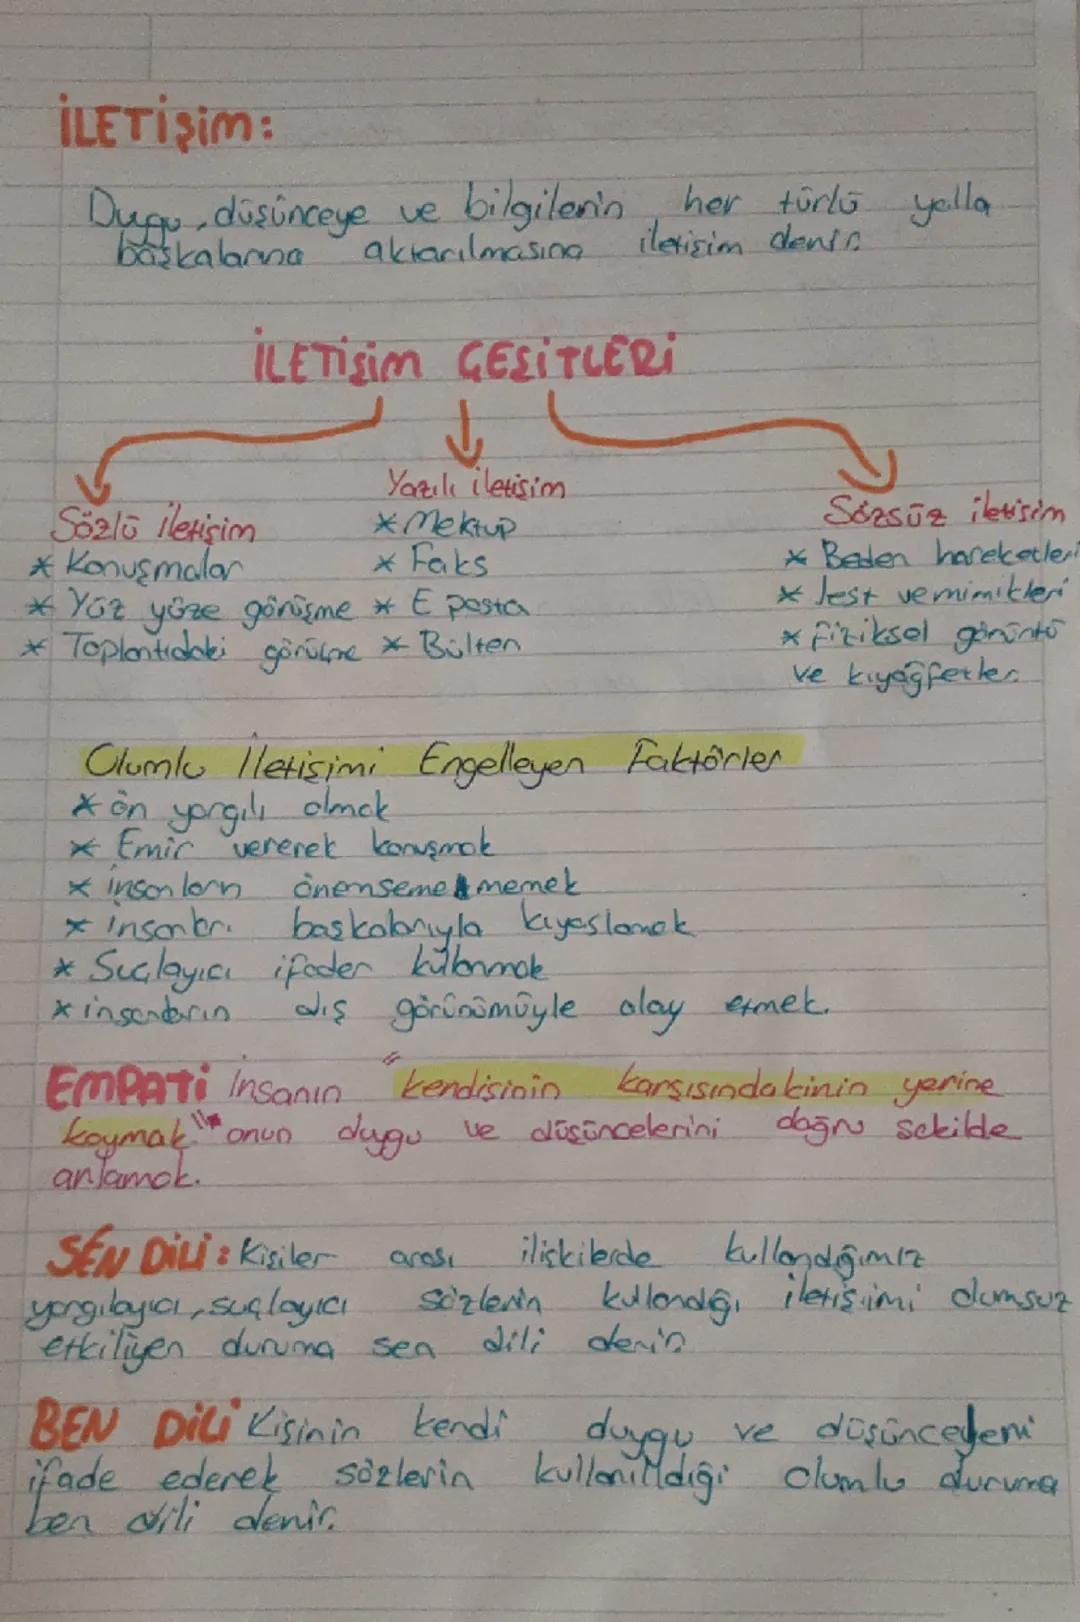 İLETİŞİM:
Duygu, düşünceye ve bilgilerin her türlü yolla
başkalarına aktarılmasına iletişim denir.
İLETİŞİM ÇEŞİTLERİ
Sözlü iletişim
* Konuşmalar
* Yüz yüze görüşme
* Toplantıdaki görüşme
Yazılı iletişim
* Mektup
* Faks
* E posta
* Bülten
Sözsüz iletişim
* Beden hareketleri
* Jest ve mimikleri
* fiziksel görüntü
ve kıyağfetler
Olumlu İletişimi Engelleyen Faktörler
* ön yargılı olmak
* Emir vererek konuşmak
* insanların önemsememek
* insanları başkalarıyla kıyaslamak
* Suçlayıcı ifader kullanmak
* insanların dış görünümüyle alay etmek.
EMPATİ İnsanın "kendisinin karşısındakinin yerine
koymak" onun duygu ve düşüncelerini doğru şekilde
anlamak.
SEN DİLİ: Kişiler arası ilişkilerde kullandığımız
yargılayıcı, suçlayıcı sözlerin kullandığı iletişimi olumsuz
etkiliyen duruma sen dili denir.
BEN DİLİ Kişinin kendi duygu ve düşünceleri
ifade ederek sözlerin kullanıldığı olumlu duruma
ben dili denir.